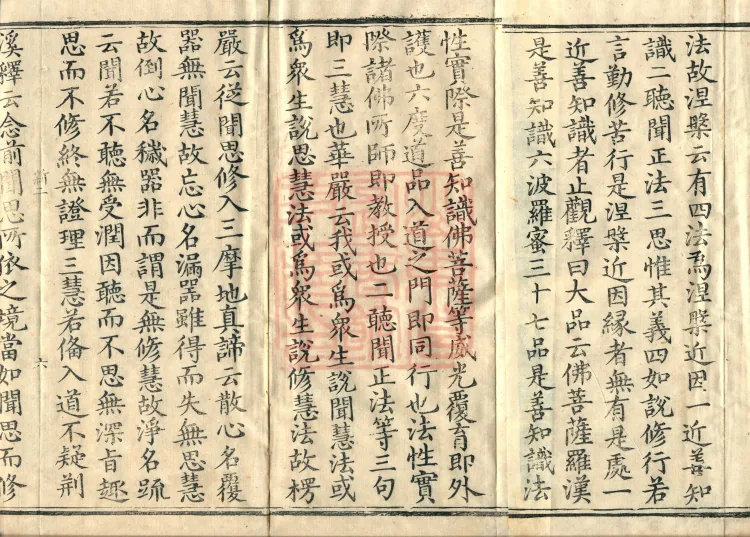 法故涅槃云有四法爲涅槃近因一近善知
識二聽聞正法三思惟其義四如說修行若
言勤修苦行是涅槃近因緣者無有是處一
近善知識者止觀釋曰大品云佛菩薩羅漢
是善知識六波羅蜜三十七品是善知識法
性實際是善知識佛菩薩等威光覆育即外
護也六度道品入道之門即同行也法性實
際諸佛所師即教授也二聽聞正法等三句
即三慧也華嚴云我或爲衆生說聞慧法或
爲衆生說思慧法或爲衆生說修慧法故楞
嚴云從聞思修入三摩地真諦云散心名覆
器無聞慧故忘心名漏器雖得而失無思慧
故倒心名穢器非而謂是無修慧故淨名疏
云聞若不聽無受潤因聽而不思無深旨趣
思而不修終無證理三慧若俻入道不疑荆
六
溪釋云念前聞思所依之境當如聞思而修